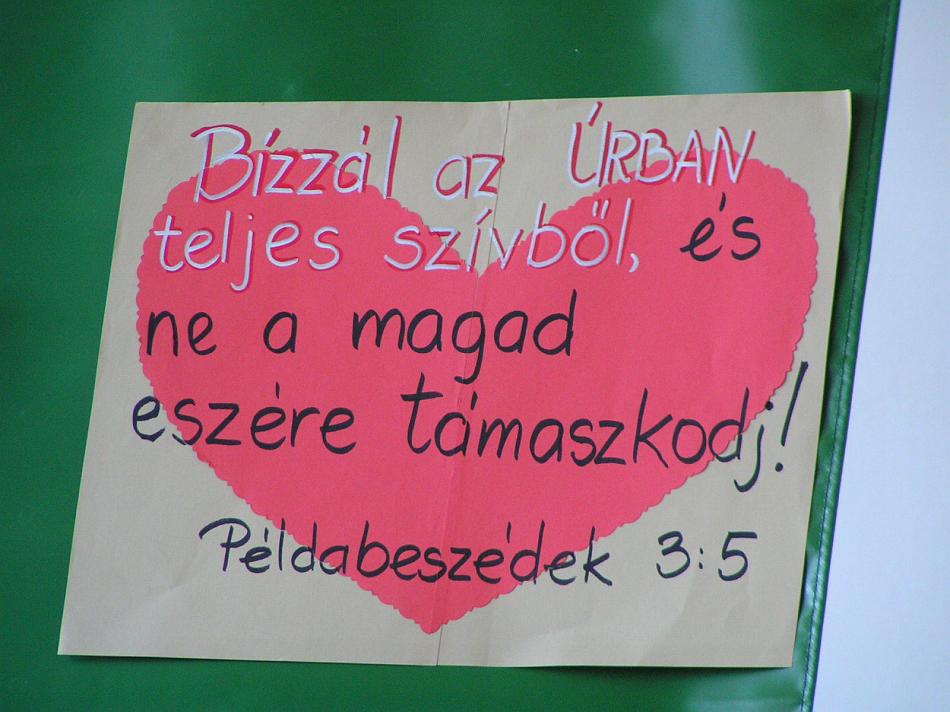 Bízzál az ÚRBAN
teljes szívből, és
ne a magad
eszére támaszkodj!
Példabeszédek 3:5